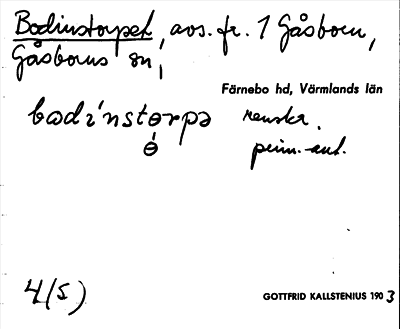 Bodinstorpet, avs. fr. 1 Gåsborn,
Gåsborns sn,
Färnebo hd, Värmlands län
badınstɵrpə
ɵ
prim.-ant.
4(5)
GOTTFRID KALLSTENIUS 1903